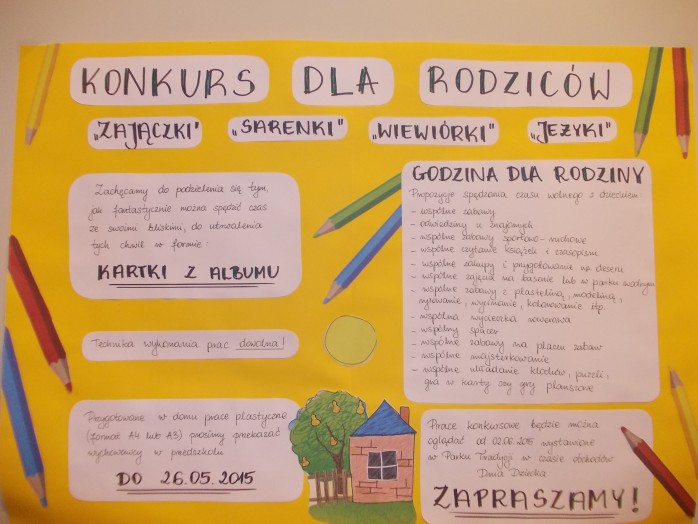 KONKURS DLA RODZICÓW
„ZAJĄCZKI" „SARENKI" „WIEWIÓRKI" „JEŻYKI"
Zachęcamy do podzielenia się tym,
jak fantastycznie można spędzić czas
ze swoimi bliskimi, do utrwalenia
tych chwil w formie:
KARTKI Z ALBUMU
Technika wykonania prac dowolna!
Przygotowane w domu prace plastyczne
(format A4 lub A3) prosimy przekazać
wychowawcy w przedszkolu
DO 26.05.2015
GODZINA DLA RODZINY
Propozycje spędzania czasu wolnego z dzieckiem:
- wspólne zabawy
- odwiedziny u znajomych
- wspólne zabawy sportowo-ruchowe
- wspólne czytanie książek i czasopism
- wspólne zakupy i przygotowanie np. deseru
- wspólne zajęcia na basenie lub w parku wodnym
- wspólne zabawy z plasteliną, modeliną,
rysowanie, wycinanie, kolorowanie itp.
- wspólna wycieczka rowerowa
- wspólny spacer
- wspólne zabawy na placu zabaw
- wspólne majsterkowanie
- wspólne układanie klocków, puzzli,
gra w karty czy gry planszowe
Prace konkursowe będzie można
oglądać od 02.06.2015 wystawione
w Parku Tradycji w czasie obchodów
Dnia Dziecka
ZAPRASZAMY!